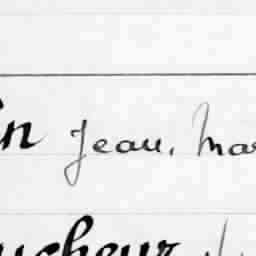 in Jean, Mar
ucheur